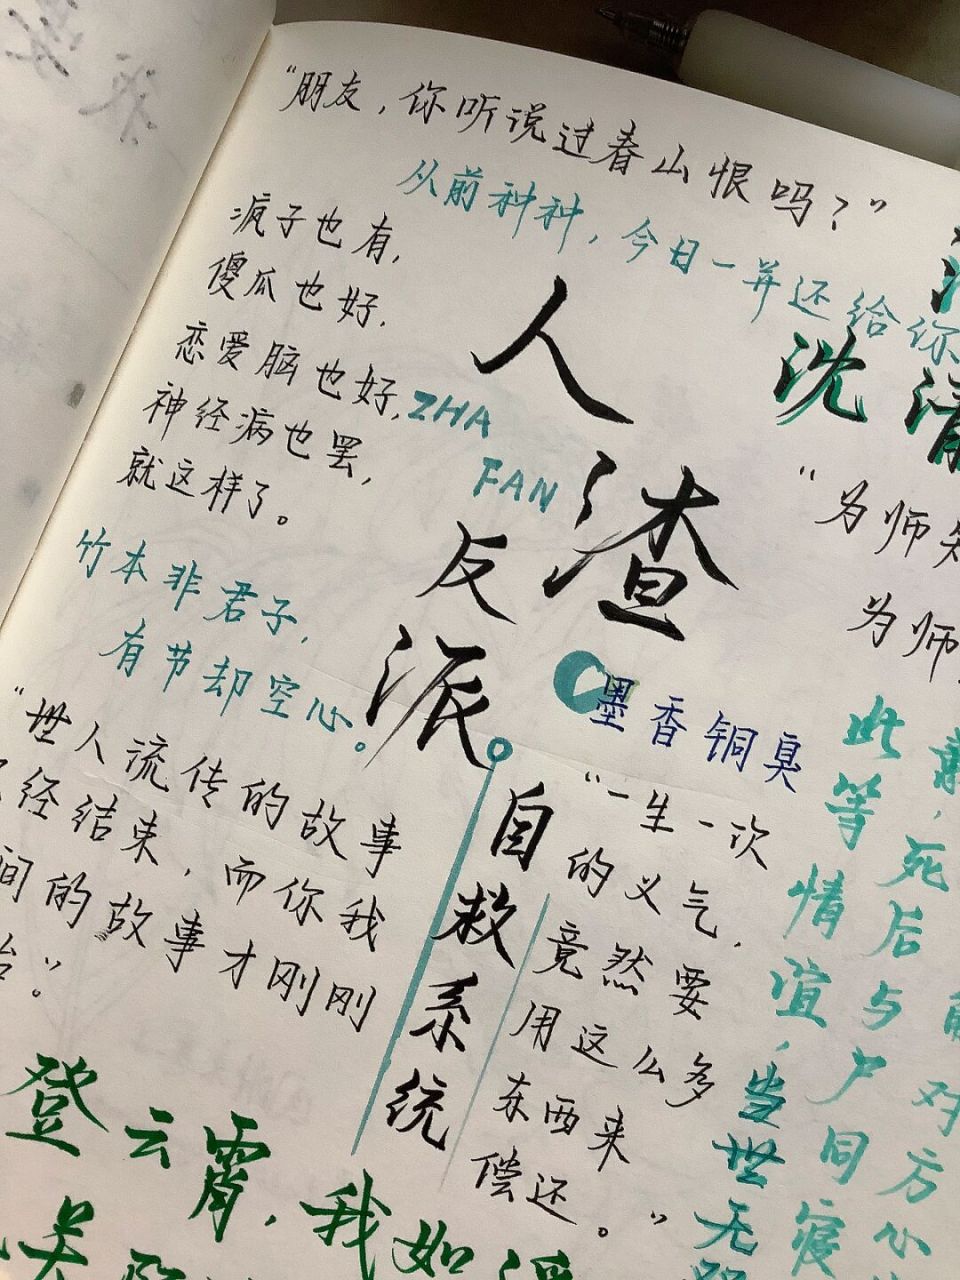 “朋友，你听说过春山恨吗？”
从前种种，今日一并还给你
疯子也有，
傻瓜也好，
恋爱脑也好，
神经病也罢，
就这样了。
人渣
ZHA
FAN
反派
自救系统
沈清
“为师
为师
竹本非君子，
有节却空心。
墨香铜臭
“世人流传的故事
经结束，而你我
间的故事才刚刚
始”。
“一生一次
的义气，
竟然要
用这么多
东西来
偿还。”
死后与尸同寝
此等情谊，当世无
对方心
登云霄，我如